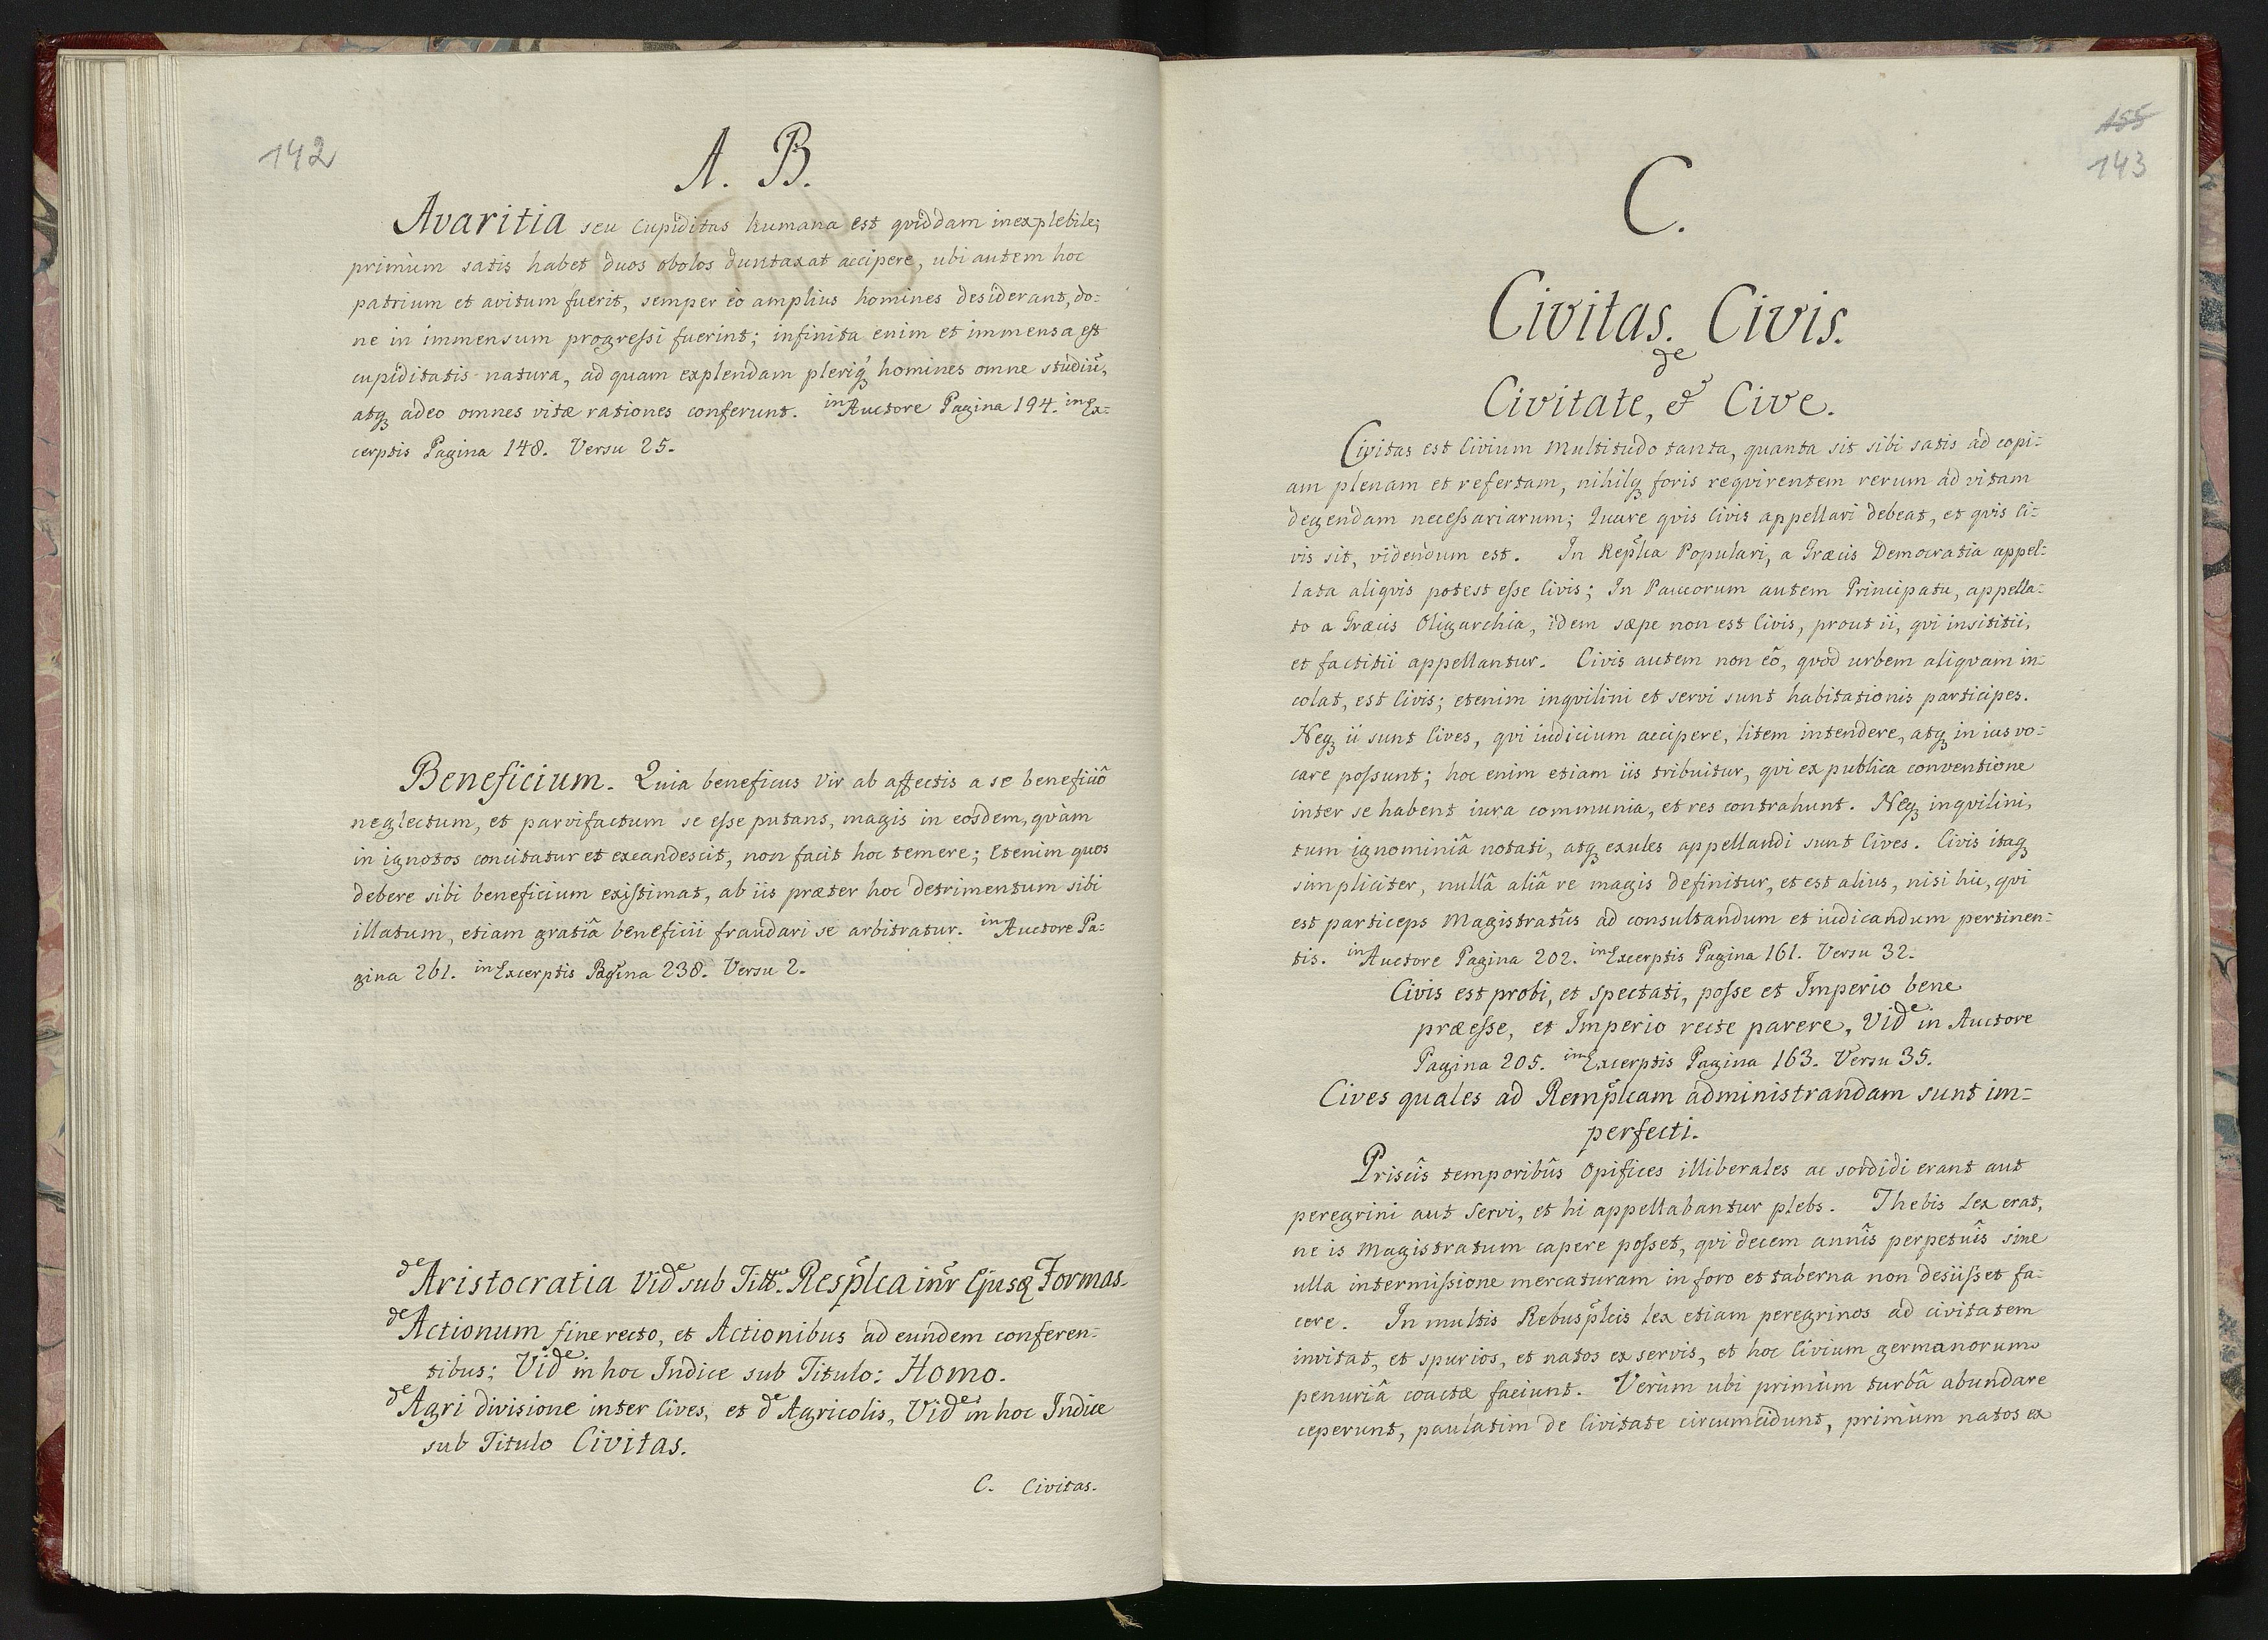 142
A. B.
Avaritia seu Cupiditas humana est qviddam inexplebile;
primùm satis habet duos obolos duntaxat accipere, ubi autem hoc
patrium et avitum fuerit, semper eò amplius homines desiderant, do=
ne in immensum progreſsi fuerint; infinita enim et immensa est
cupiditatis natura, ad quam explendam pleriqꝫ homines omne studiũ,
atqꝫ adeo omnes vitæ rationes conferunt. in Auctore Pagina 194. in Ex=
cerptis Pagina 148. Versu 25.
Beneficium. Quia beneficus vir ab affectis a se beneficiô
neglectum, et parvifactum se eſse putans, magis in eosdem, qvàm
in ignotos concitatur et excandescit, non facit hoc temere; Etenim quos
debere sibi beneficium existimat, ab iis præter hoc detrimentum sibi
illatum, etiam gratiâ beneficii fraudari se arbitratur. in Auctore Pa=
gina 261. in Excerptis Pagina 238. Versu 2.
de Aristocratia Vide sub Titt. Resplca Ejusqꝫ Formas.
de Actionum fine recto, et Actionibus ad eundem conferen=
tibus; Vide in hoc Indice sub Titulo: Homo.
de Agri divisione inter Cives, et de Agricolis, Vide in hoc Indice
sub Titulo Civitas.
C. Civitas.
155
143
C.
Civitas. Civis.
de
Civitate, & Cive.
Civitas est Civium Multitudo tanta, quanta sit sibi satis ad copi=
am plenam et refertam, nihilqꝫ foris reqvirentem rerum ad vitam
degendam neceſsariarum; Quare qvis Civis appellari debeat, et qvis Ci=
vis sit, videndum est. In Replca Populari, a Græcis Democratia appel=
lata aliqvis potest eſse Civis; In Paucorum autem Principatu, appella=
to a Græcis Oligarchia, idem sæpe non est Civis, prout ii, qvi insititii,
et factitii appellantur. Civis autem non eô, qvod urbem aliqvam in=
colat, est Civis; etenim inqvilini et servi sunt habitationis participes.
Neqꝫ ii sunt Cives, qvi iudicium accipere, litem intendere, atqꝫ in ius vo=
care poſsunt; hoc enim etiam iis tribuitur, qvi ex publica conventione
inter se habent iura communia, et res contrahunt. Neqꝫ inqvilini,
tum ignominiâ notati, atqꝫ exules appellandi sunt Cives. Civis itaqꝫ
simpliciter, nullâ aliâ re magis definitur, et est alius, nisi hic, qvi
est particeps Magistratûs ad consultandum et iudicandum pertinen=
tis. in Auctore Pagina 202. in Excerptis Pagina 161. Versu 32.
Civis est probi, et spectati, poſse et Imperio bene
præeſse, et Imperio recte parere, Vide in Auctore
Pagina 205. in Excerptis Pagina 163. Versu 35.
Cives quales ad Remplcam administrandam sunt im=
perfecti.
Priscîs temporibûs Opifices illiberales ac sordidi erant aut
peregrini aut Servi, et hi appellabantur plebs. Thebis Lex erat,
ne is Magistratum capere poſset, qvi decem annîs perpetuîs sine
ulla intermiſsione mercaturam in foro et taberna non desiiſset fa=
cere. In multis Rebusplcis lex etiam peregrinos ad civitatem
invitat, et spurios, et natos ex servis, et hoc Civium germanorum
penuriâ coactæ faciunt. Verùm ubi primùm turbâ abundare
ceperunt, paulatim de Civitate circumcidunt, primùm natos ex